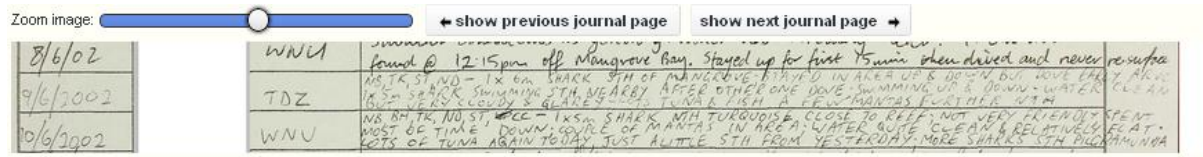 Zoom image:
← show previous journal page
show next journal page →
8/6/02
WNU
found @ 12:15pm off Mangrove Bay. Stayed up for first 15min then dived and never resurface
9/6/2002
TDZ
NB, TK, ST, ND - 1x 6m SHARK STH OF MANGROVE - STAYED IN AREA UP & DOWN BUT DOVE EARLY
1x5m SHARK SWIMMING STH NEARBY AFTER OTHER ONE DOVE - SWIMMING UP & DOWN - WATER CLEAN
BUT VERY CLOUDY & GLAREY - LOTS TUNA & FISH A FEW MANTAS FURTHER NTH
10/6/2002
WNU
NB, BH, TK, ND, ST, CC - 1x5m SHARK NTH TURQUOISE, CLOSE TO REEF, NOT VERY FRIENDLY SPENT
MOST OF TIME DOWN, COUPLE OF MANTAS IN AREA, WATER QUITE CLEAN & RELATIVELY FLAT.
LOTS OF TUNA AGAIN TODAY, JUST A LITTLE STH FROM YESTERDAY. MORE SHARKS STH PILGRAMUNNA